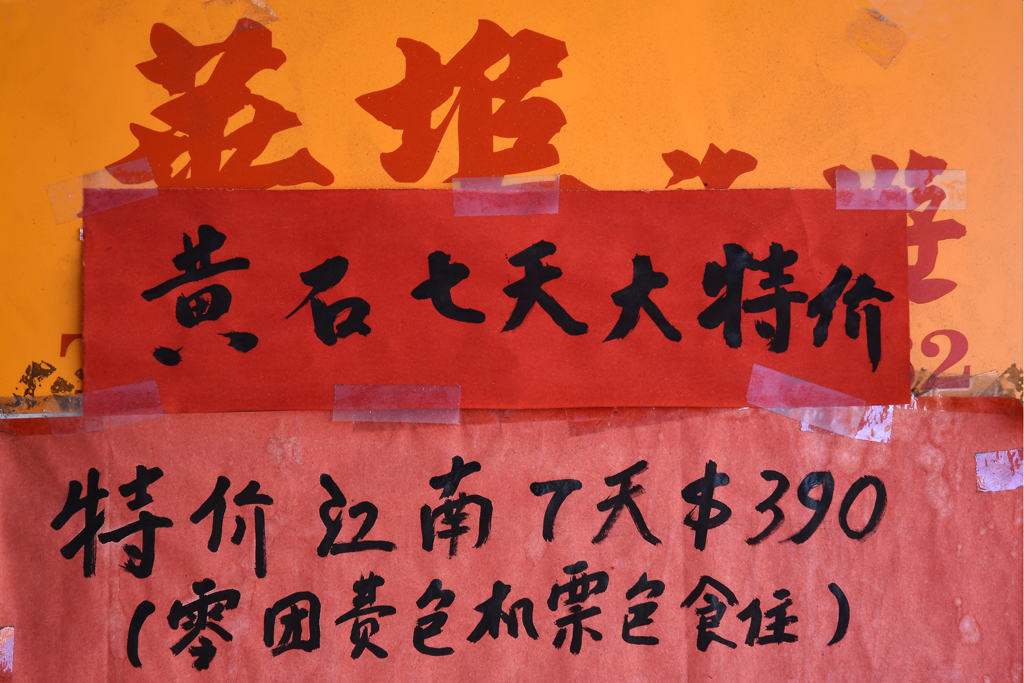 華埠
黄石七天大特价
特价江南7天$390
(零团费包机票包食住)